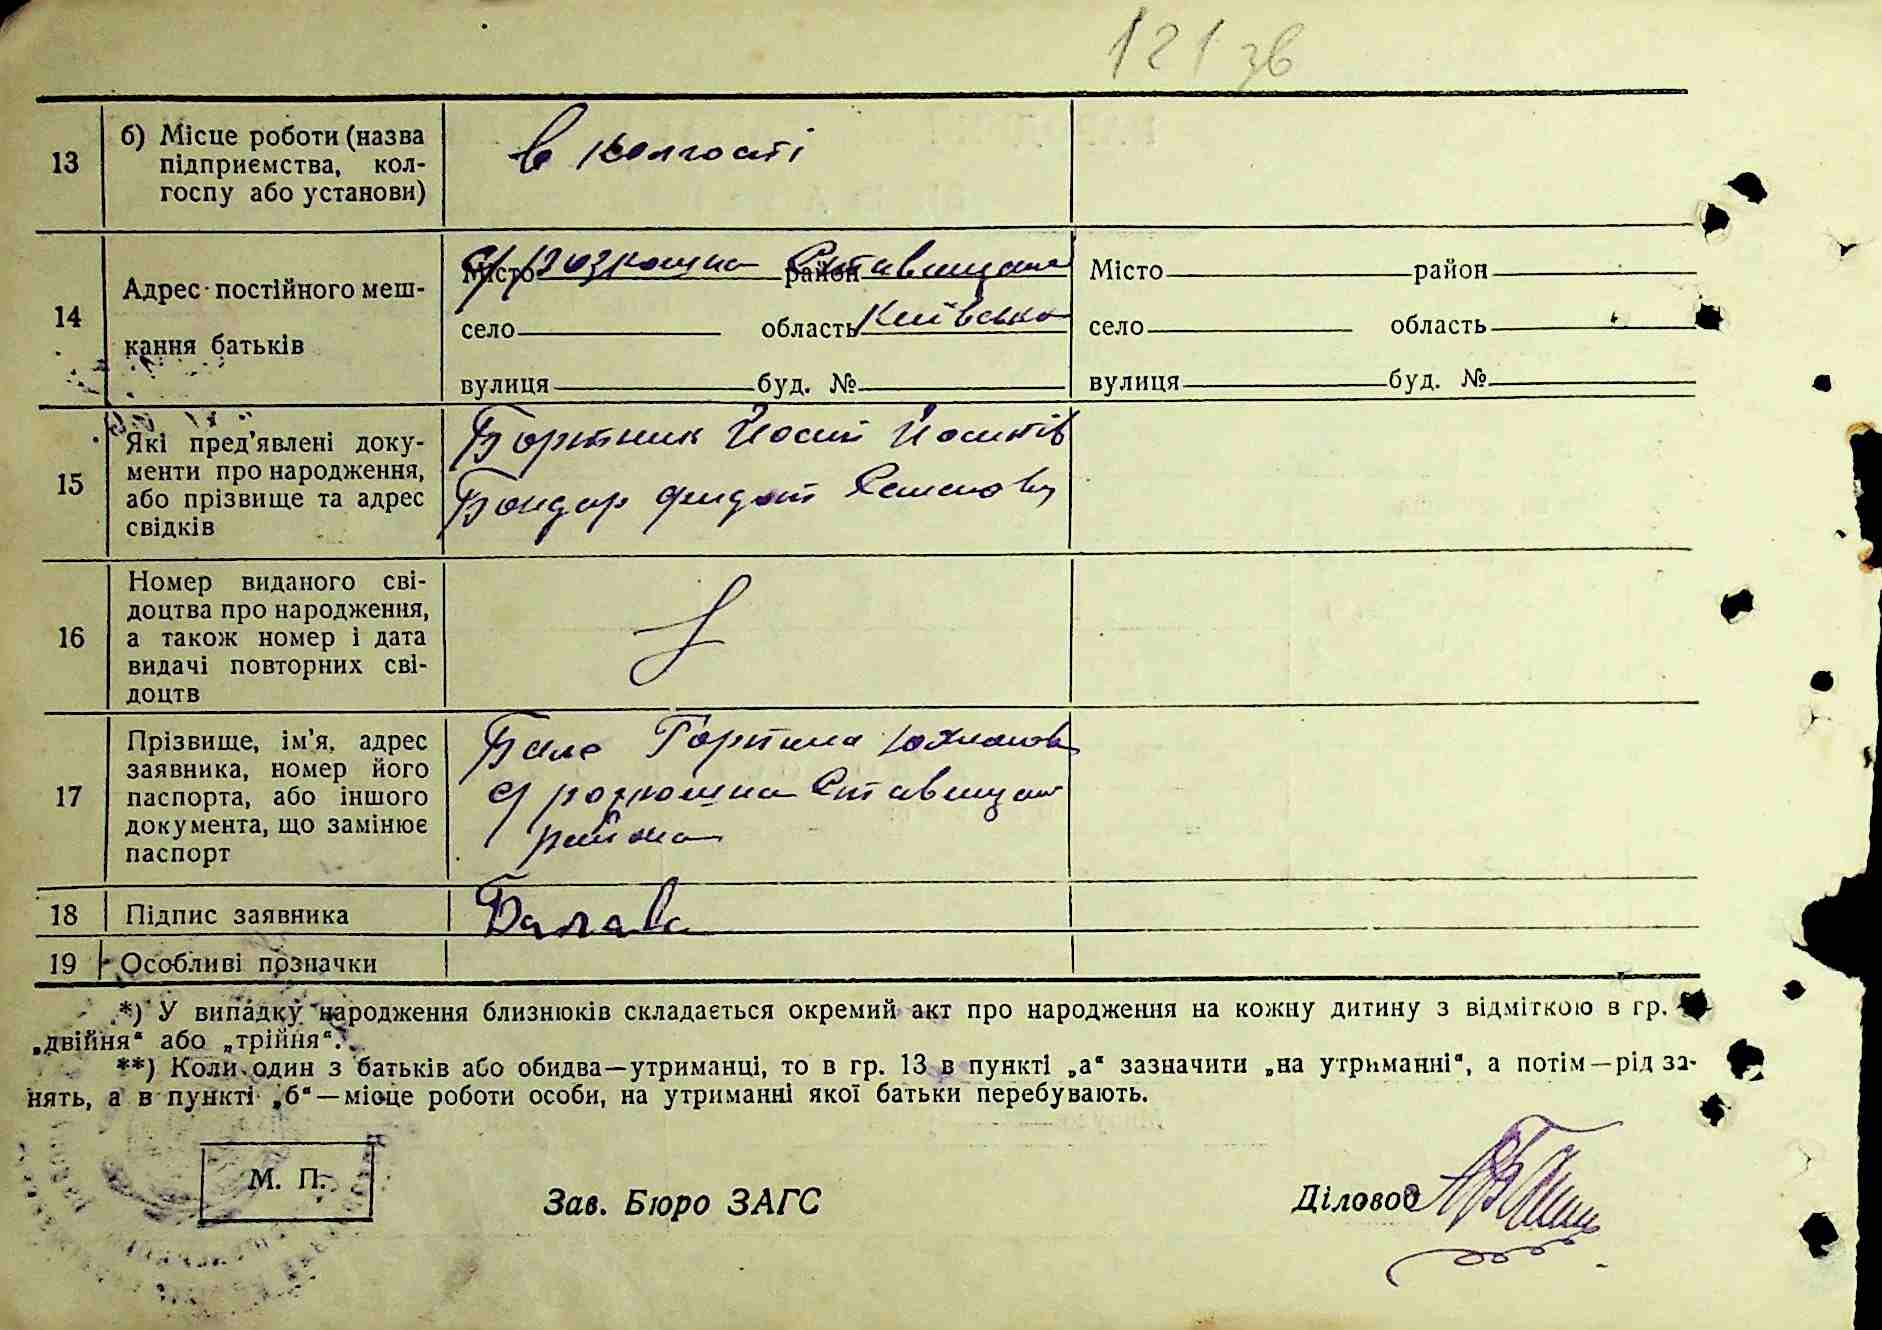 121 зв
13
б) Місце роботи (назва
підприємства, кол-
госпу або установи)
в колгоспі
14
Адрес постійного меш-
кання батьків
Місто с/Розкошна район Ставищан
село область Київська
вулиця буд. №
Місто район
село область
вулиця буд. №
15
Які пред'явлені доку-
менти про народження,
або прізвище та адрес
свідків
Бортник Йосип Йосипів
Бондар Федот Семенов
16
Номер виданого сві-
доцтва про народження,
а також номер і дата
видачі повторних сві-
доцтв
17
Прізвище, ім'я, адрес
заявника, номер його
паспорта, або іншого
документа, що замінює
паспорт
Горпина
с/ Ставищан
района
18
Підпис заявника
19
Особливі позначки
*) У випадку народження близнюків складається окремий акт про народження на кожну дитину з відміткою в гр.
„двійня“ або „трійня“.
**) Коли один з батьків або обидва—утриманці, то в гр. 13 в пункті „а“ зазначити „на утриманні“, а потім—рід за-
нять, а в пункті „б“—місце роботи особи, на утриманні якої батьки перебувають.
М. П.
Зав. Бюро ЗАГС
Діловод